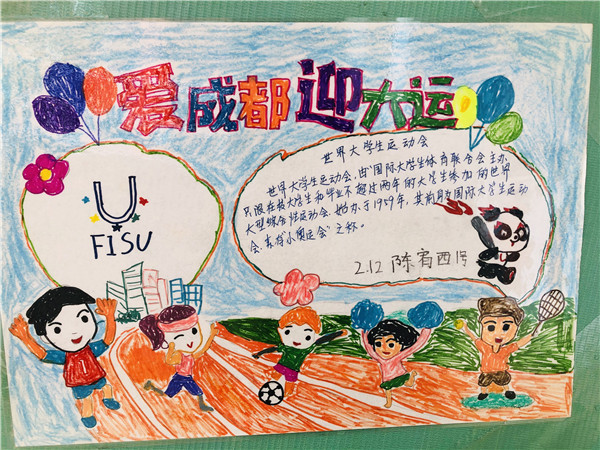 爱成都迎大运
U
FISU
世界大学生运动会
世界大学生运动会,由"国际大学生体育联合会主办
只限在校大学生和毕业不超过两年的大学生参加的世界
大型综合性运动会。始办于1959年,其前身为国际大学生运动
会.素有"小奥运会"之称。
2.12 陈宥西 1号